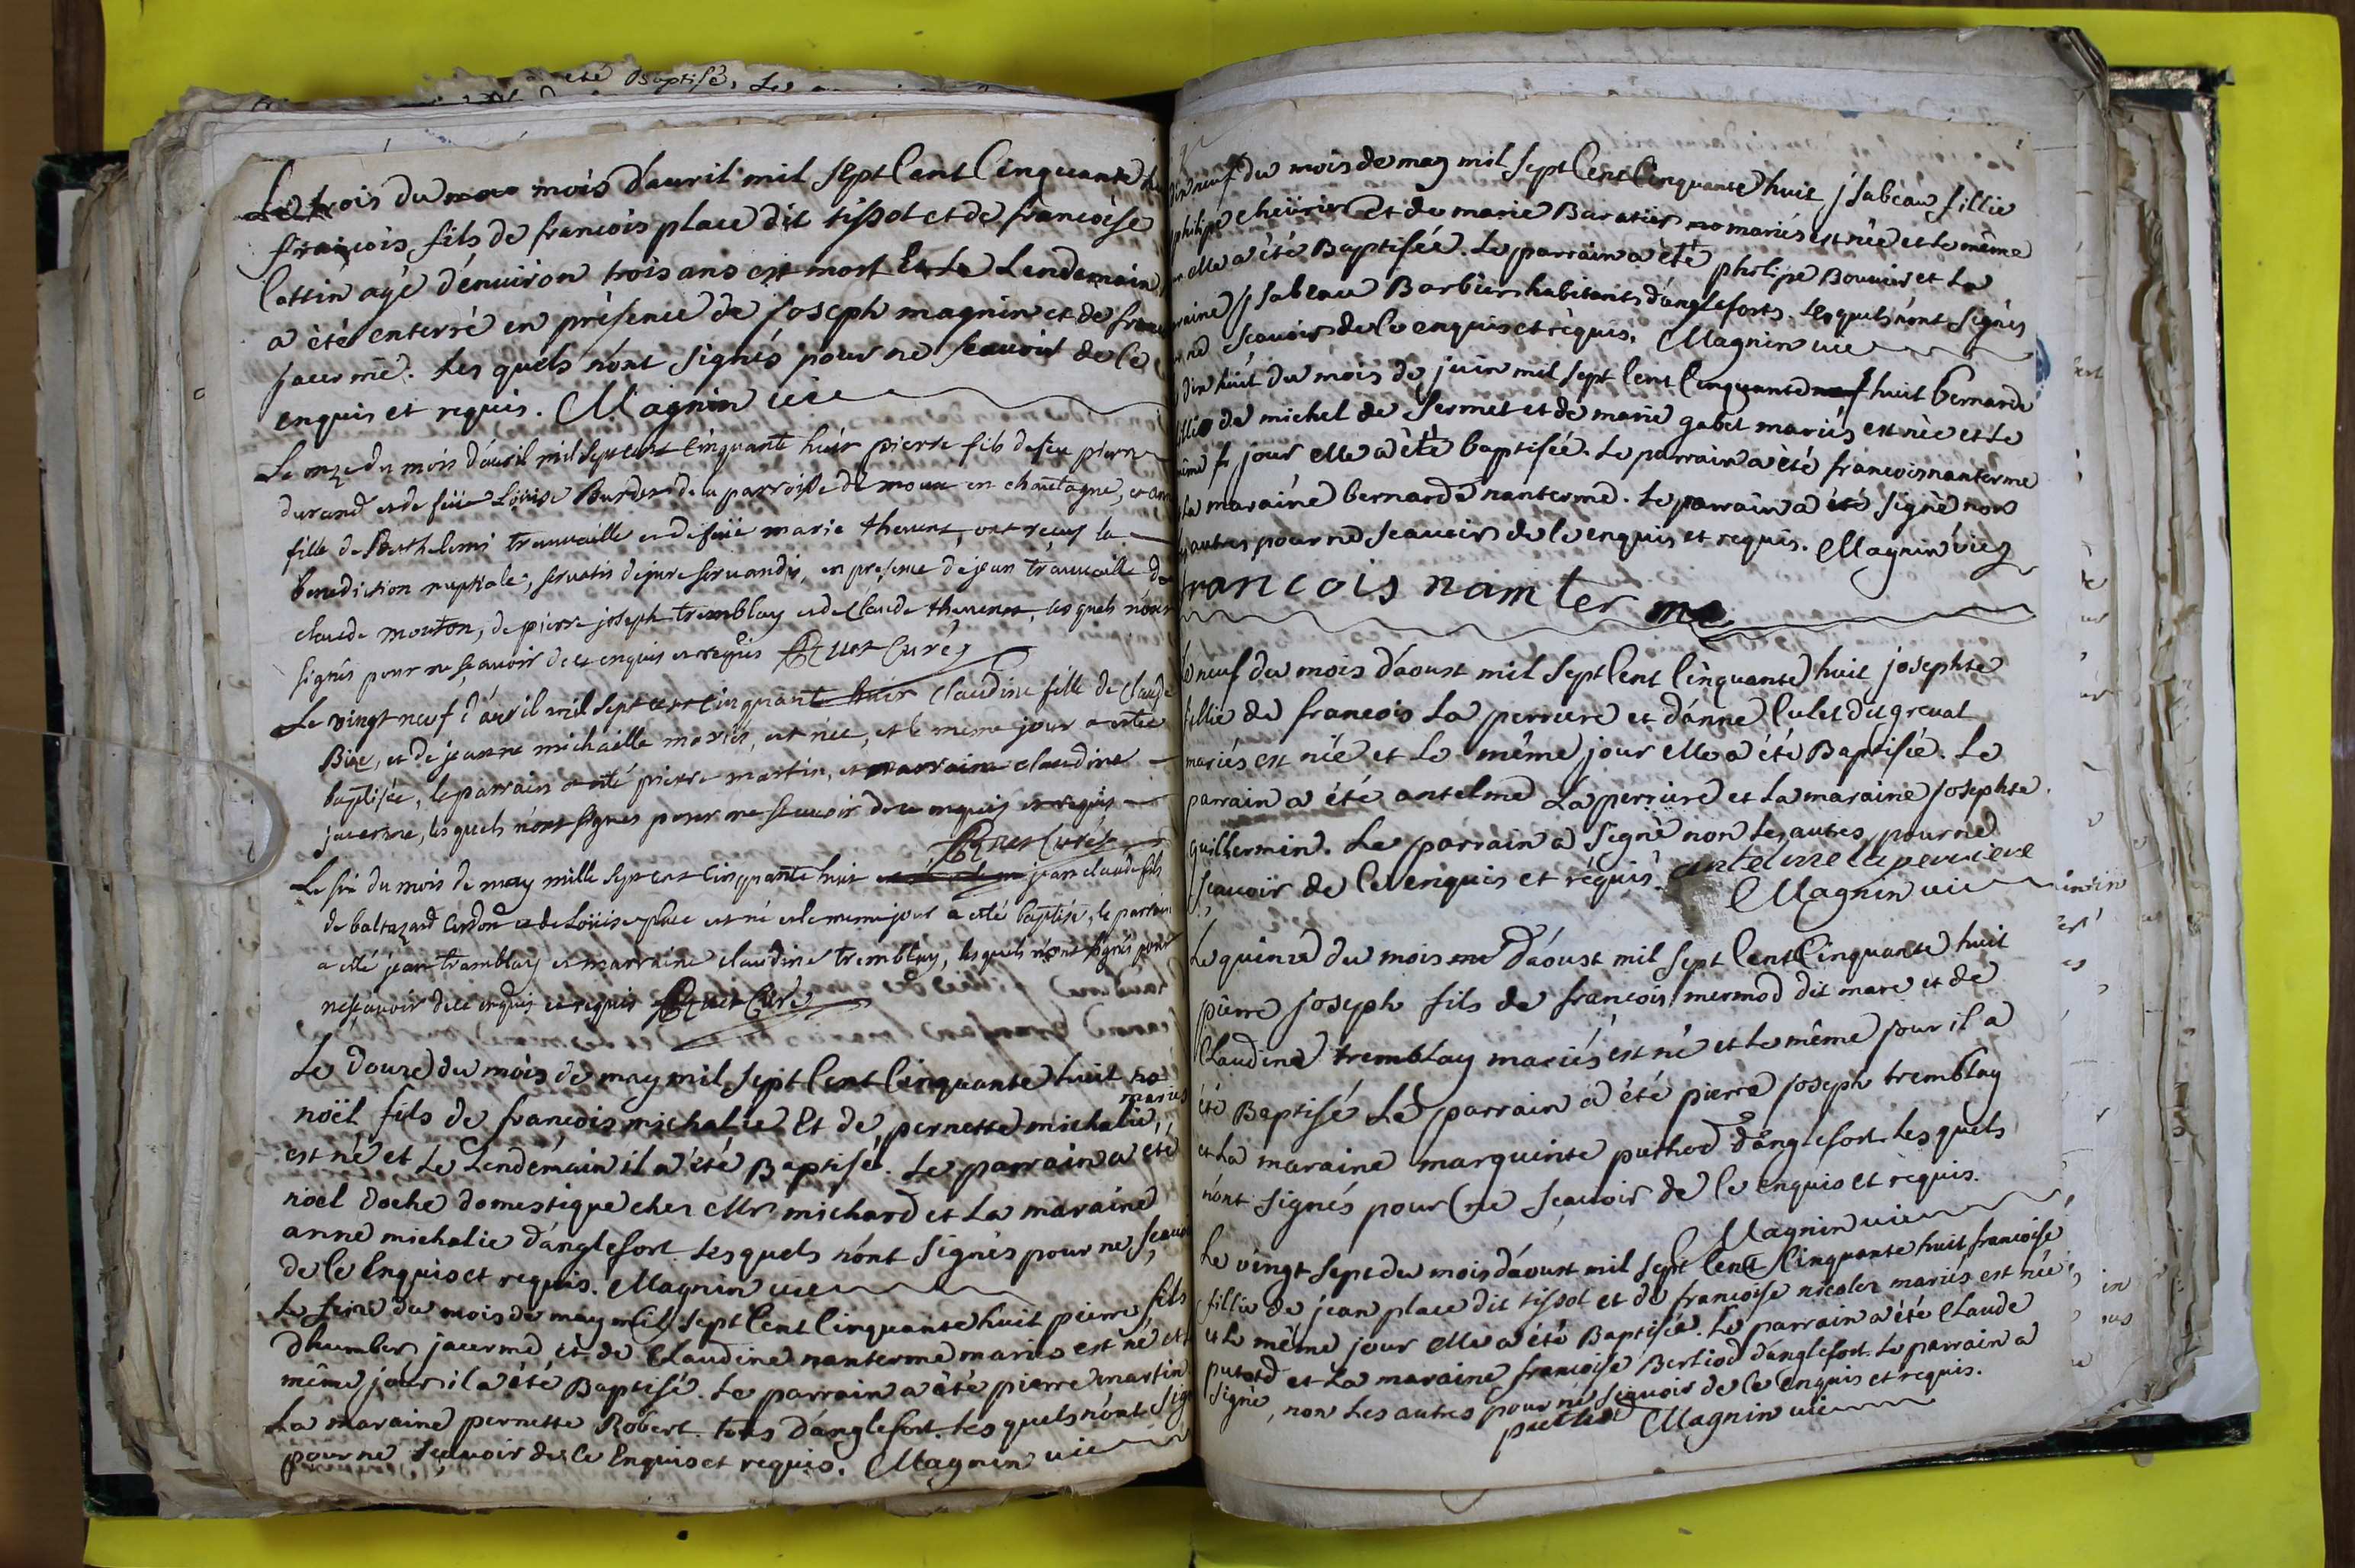 été Baptisé, Le
Le trois du mois d'auril mil sept Cent Cinquante
françois fils de francois place dit tissot et de francoise
Cattin agé d'enuiron trois ans est mort Et Le Lendemain
a été enterré en présence de joseph magnin et de
jacerme. Les quels n'ont signés pour ne scauoir de Ce
enquis et requis. Magnin vic
Le onze du mois d'auril mil sept cent cinquante huit pierre fils de feu pierre
durand et de feüe Loüise Burdet de la parroisse de moux en chautagne, et
fille de Berthelemi trauuaille et de feüe marie theuenet, ont reçus la
benediction nuptiale, seruatis de jure seruandis, en presence de jean trauuaille de
claude mouton, de pierre joseph tremblay et de Claude theuenet, les quels n'ont
signés pour ne scauoir de ce enquis et requis Curé
Le vingt neuf d'auril mil sept cent cinquante huit Claudine fille de Claude
Bize, et de jeanne michaille mariés, est née, et le meme jour a estée
baptisée, le parrain a esté pierre martin, et marraine claudine
jacerme, les quels n'ont signés pour ne scauoir de ce enquis et requis
Curé
Le six du mois de may mille sept cent cinquante huit jean claude fils
de baltazard Cerdon et de Loüise place est né et le meme jour a esté baptisé, le parrain
a esté jean tramblay et marraine claudine tremblay, lesquels n'ont signés pour
ne scauoir de ce enquis et requis Curé
Le douze du mois de may mil sept Cent Cinquante huit
mariés
noël fils de francois michalie Et de pernette michalie,
est né et Le Lendemain il a été Baptisé. Le parrain a été
noel doche domestique chez Mr michard et La maraine
anne michalie d'anglefort Lesquels n'ont signés pour ne scauoi
de Ce Enquis et requis. Magnin vic
Le seize du mois de may mil sept Cent Cinquante huit pierre fils
d'humber jacerme et de Claudine nanterme mariés est né et
même jour il a été Baptisé. Le parrain a été pierre martin
La maraine pernette Robert tous d'anglefort. Les quels n'ont sign
pour ne scauoir de Ce Enquis et requis. Magnin vic
dix neuf du mois de may mil sept Cent Cinquante huit jsabeau fillie
philipe cheürier et de marie Baratier mariés est née et le même
elle a été Baptisée. Le parrain a été philipe Bouuier et La
raine jsabeau Barbier habitants d'angleforts. Lesquels n'ont signés
ne scauoir de Ce enquis et requis. Magnin vic
dix huit du mois de juin mil sept Cent Cinquante huit Bernarde
fillie de michel de sermet et de marie gabet mariés est née et Le
même jour elle a été baptisée. Le parrain a été francois nanterme
La maraine bernarde nanterme. Le parrain a été signé non
autres pour ne scauoir de Ce enquis et requis. Magnin vic
francois nam ter me
Le neuf du mois d'aoust mil sept Cent Cinquante huit josephte
fillie de francois La perriere et d'anne Culet dit greuat
mariés est née et Le même jour elle a été Baptisée. Le
parrain a été antelme La perriere et La maraine josephte
guillermin. Le parrain a signé non Les autres pour ne
scauoir de Ce enquis et requis. antelme la perriere
Magnin vic
Le quinze du mois d'aoust mil sept Cent Cinquante huit
pierre joseph fils de francois mermod dit mare et de
Claudine tremblay mariés est né et Le même jour il a
été Baptisé Le parrain a été pierre joseph tremblay
et La maraine marguerite puthod d'anglefort. Les quels
n'ont signés pour ne scauoir de Ce enquis et requis.
Magnin vic
Le vingt sept du mois d'aoust mil sept Cent Cinquante huit francoise
fillie de jean place dit tissot et de francoise nicolet mariés est née
et Le même jour elle a été Baptisée. Le parrain a été Claude
putod et La maraine francoise Bertiod d'anglefort Le parrain a
signé, non Les autres pour ne scauoir de Ce Enquis et requis.
Magnin vic